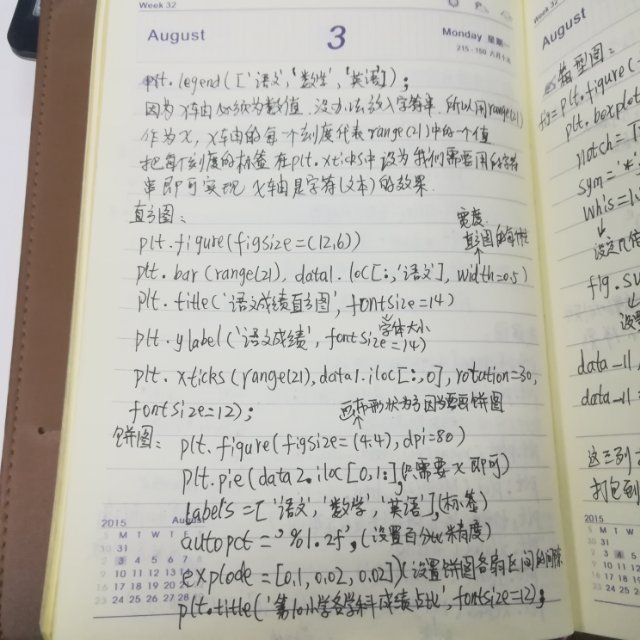 Week 32
August
3
Monday 星期一
plt.legend(['语文','数学','英语']);
因为x轴必须为数值,没办法放入字符串,所以用range(21)
作为x,x轴的每个刻度代表range(21)中的一个值
把每个刻度的标签在plt.xticks中设为我们需要用的字符
串即可实现x轴是字符(文本)的效果.
直方图:
宽度
plt.figure(figsize=(12,6))
plt.bar(range(21),data1.loc[:,'语文'],width=0.5)
plt.title('语文成绩直方图',fontsize=14)
字体大小
plt.ylabel('语文成绩',fontsize=14)
plt.xticks(range(21),data1.iloc[:,0],rotation=30,
fontsize=12);
画布形状为方因为要画饼图
饼图: plt.figure(figsize=(4,4),dpi=80)
plt.pie(data2.iloc[0,1:],(只需要x即可)
labels=['语文','数学','英语'],(标签)
autopct='%1.2f',(设置百分比精度)
explode=[0.1,0.02,0.02])(设置饼图各扇区间的间隙
plt.title('第10小学各学科成绩占比',fontsize=12);
2015 August
S M T W T F S
30 31
2 3 4 5 6 7 8
9 10 11 12 13 14 15
16 17 18 19 20 21 22
23 24 25 26 27 28 29
Week 32
August
箱型图:
fig=plt.figure(
plt.boxplot
notch=T
sym='*'
whis=1.
fig.su
data_11
data_11
这三列
打包到
2015
S M T
30 31
2 3 4
9 10 11
16 17 18
23 24 25